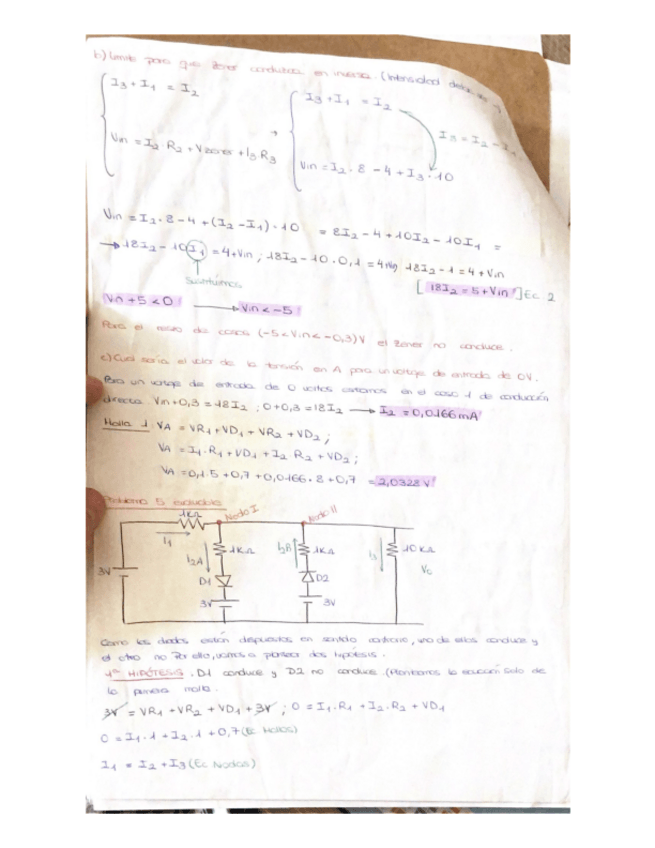 b) Límite para que zener conduzca en inversa. (Intensidad
I3 + I1 = I2
Vin = I2 R2 + Vzener + I3 R3
I3 + I1 = I2
Vin = I2 · 8 - 4 + I3 · 10
I3 = I2 - I1
Vin = I2 · 8 - 4 + (I2 - I1) · 10 = 8I2 - 4 + 10I2 - 10I1 =
→ 18I2 - 10 I1 = 4 + Vin ; 18I2 - 10 · 0,1 = 4 + Vin 18I2 - 1 = 4 + Vin
Sustituimos
[18I2 = 5 + Vin] Ec 2
Vin + 5 < 0 → Vin < -5
Para el resto de casos (-5 < Vin < -0,3)V el zener no conduce.
c) Cual sería el valor de la tensión en A para un voltaje de entrada de 0V.
Para un voltaje de entrada de 0 voltios estamos en el caso 1 de conducción
directa Vin + 0,3 = 18I2 ; 0 + 0,3 = 18I2 → I2 = 0,0166 mA
Malla 1 : VA = VR1 + VD1 + VR2 + VD2 ;
VA = I1 · R1 + VD1 + I2 · R2 + VD2 ;
VA = 0,1 · 5 + 0,7 + 0,0166 · 8 + 0,7 = 2,0328 V
Problema 5 evaluable
1KΩ Nodo I Nodo II
I1
I2A 1KΩ I2B 1KΩ I3 10 KΩ
3V D1 D2 Vo
3V 3V
Como los diodos están dispuestos en sentido contrario, uno de ellos conduce y
el otro no. Por ello, vamos a plantear dos hipótesis.
1ª HIPÓTESIS. D1 conduce y D2 no conduce. (Planteamos la ecuación solo de
la primera malla.
3V = VR1 + VR2 + VD1 + 3V ; 0 = I1 · R1 + I2 · R2 + VD1
0 = I1 · 1 + I2 · 1 + 0,7 (Ec Mallas)
I1 = I2 + I3 (Ec Nodos)